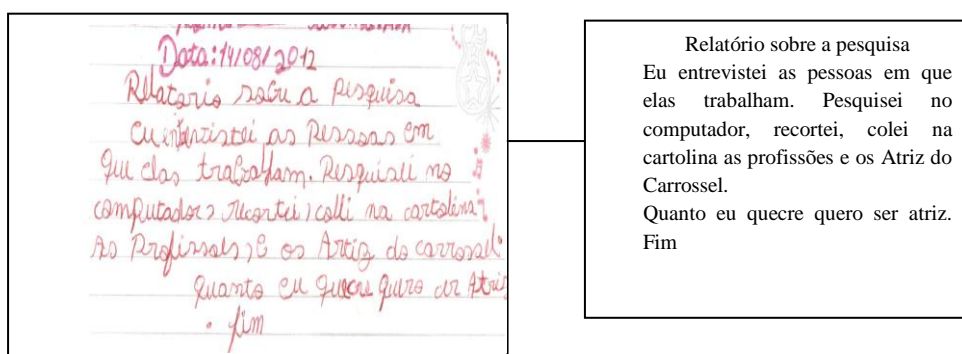 Data: 14/08/2012
Relatorio sobre a pesquisa
Eu entevistei as Pessoas em
que elas trabalham. Pesquisei no
computador, recortei, colei na cartolina
As Profissoes, e os Artiz do carrossel.
Quanto eu quecre quero ser Atriz
. fim
Relatório sobre a pesquisa
Eu entrevistei as pessoas em que
elas trabalham. Pesquisei no
computador, recortei, colei na
cartolina as profissões e os Atriz do
Carrossel.
Quanto eu quecre quero ser atriz.
Fim